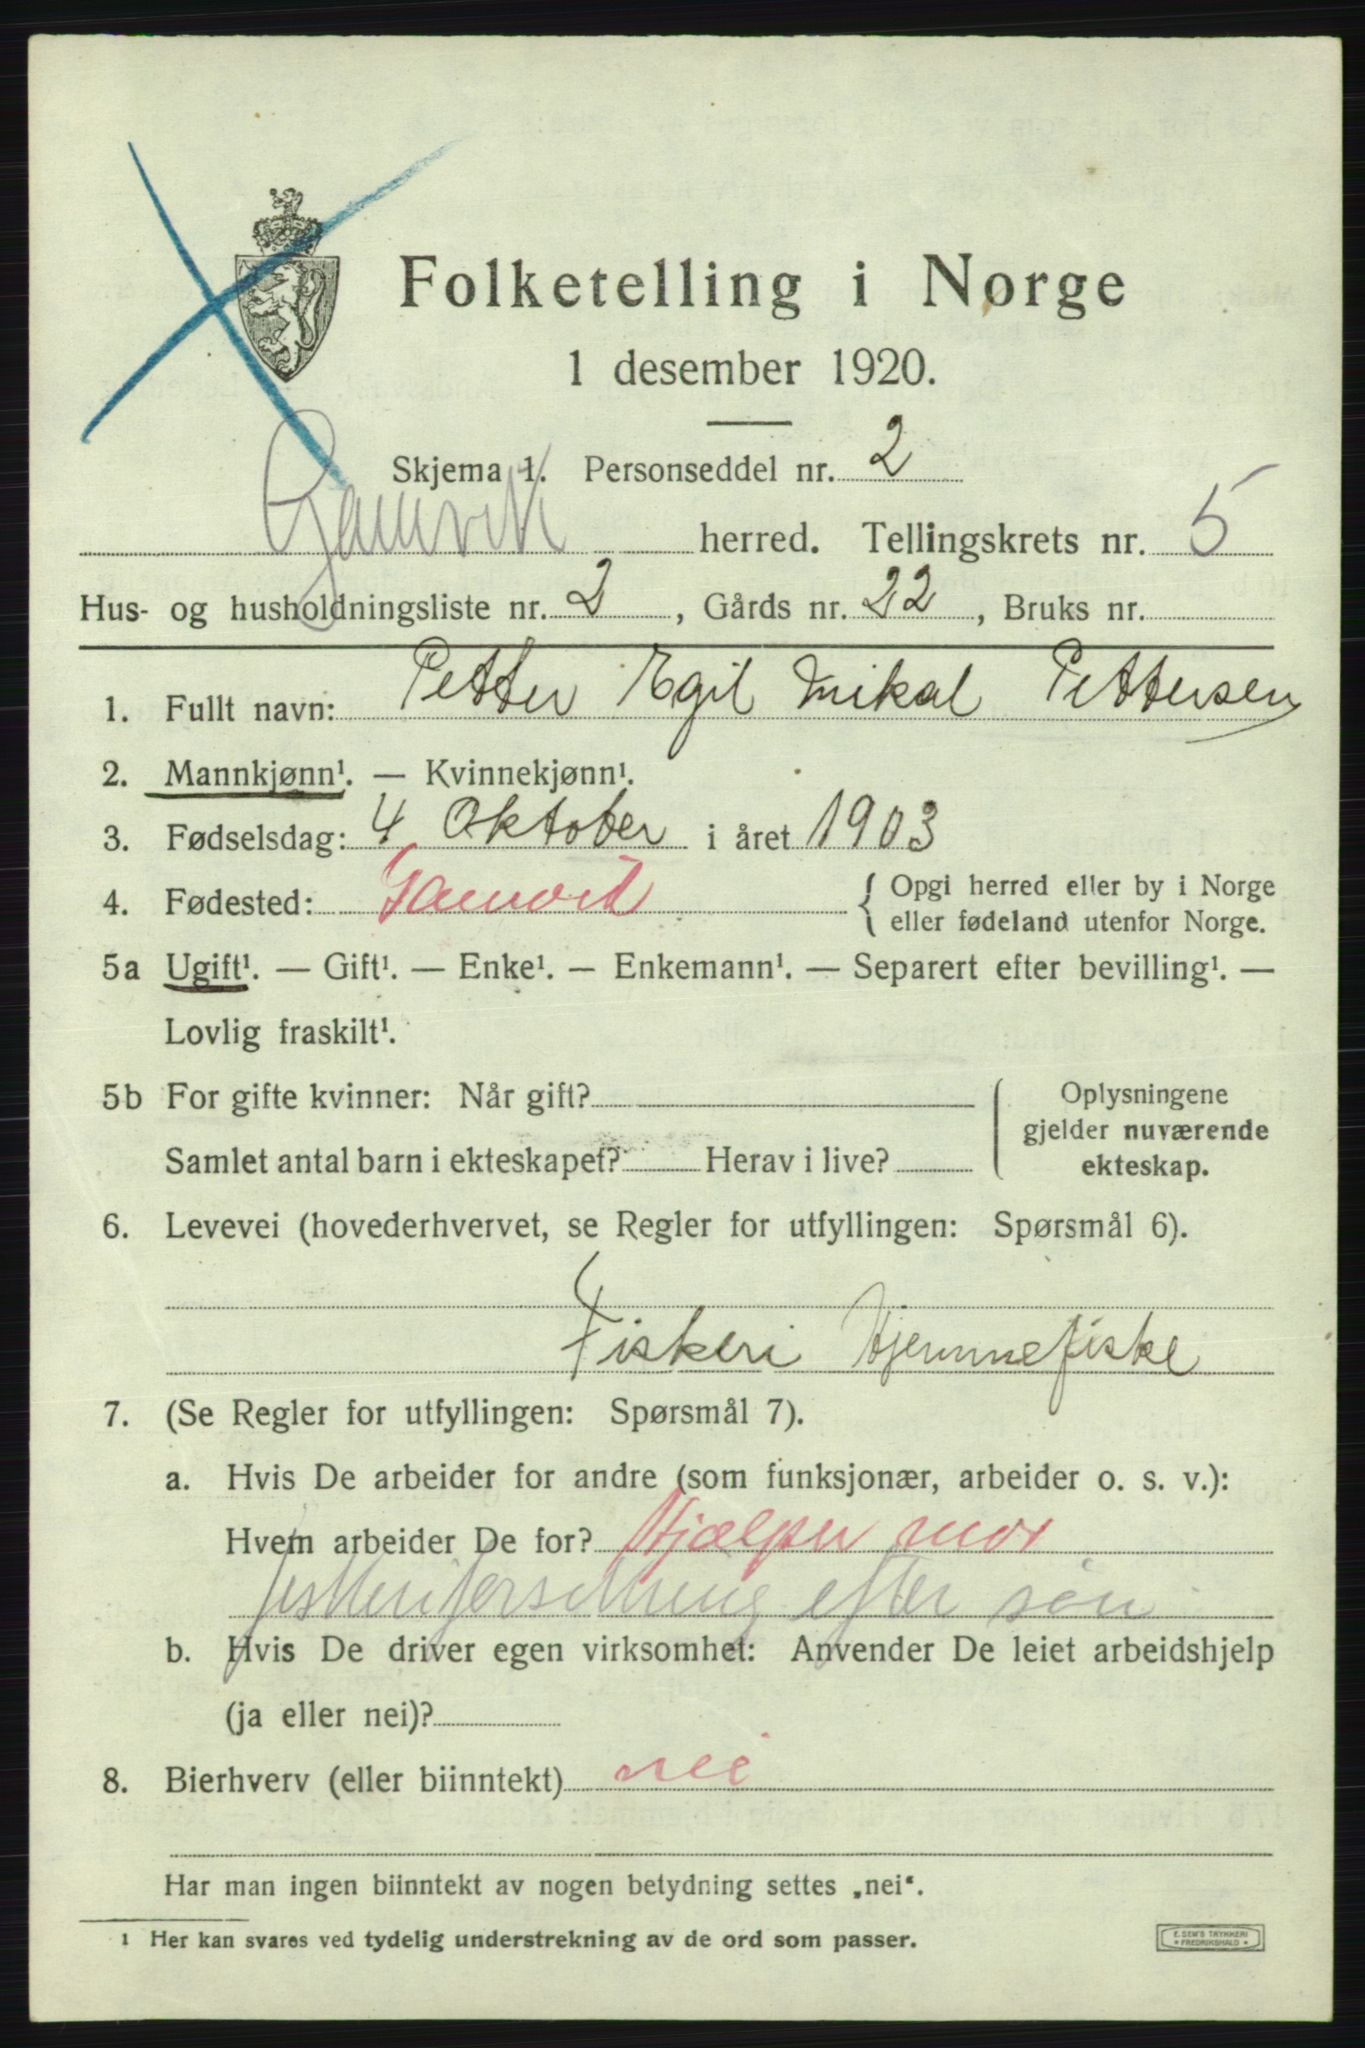 Folketelling i Norge
1 desember 1920.
Skjema 1. Personseddel nr. 2
Gamvik herred. Tellingskrets nr. 5
Hus- og husholdningsliste nr. 2, Gårds nr. 22, Bruks nr.
1. Fullt navn: Petter Egil Mikal Pettersen
2. Mannkjønn¹. — Kvinnekjønn¹.
3. Fødselsdag: 4 Oktober i året 1903
4. Fødested: Gamvik { Opgi herred eller by i Norge
eller fødeland utenfor Norge.
5a Ugift¹. — Gift¹. — Enke¹. — Enkemann¹. — Separert efter bevilling¹. —
Lovlig fraskilt¹.
5b For gifte kvinner: Når gift?
Samlet antal barn i ekteskapet? Herav i live?
Oplysningene
gjelder nuværende
ekteskap.
6. Levevei (hovederhvervet, se Regler for utfyllingen: Spørsmål 6).
Fiskeri Hjemmefiske
7. (Se Regler for utfyllingen: Spørsmål 7).
a. Hvis De arbeider for andre (som funksjonær, arbeider o. s. v.):
Hvem arbeider De for? Hjælper mor
efter
b. Hvis De driver egen virksomhet: Anvender De leiet arbeidshjelp
(ja eller nei)?
8. Bierhverv (eller biinntekt) nei
Har man ingen biinntekt av nogen betydning settes „nei“.
1 Her kan svares ved tydelig understrekning av de ord som passer.
E. SEM'S TRYKKERI
* FREDRIKSHALD *